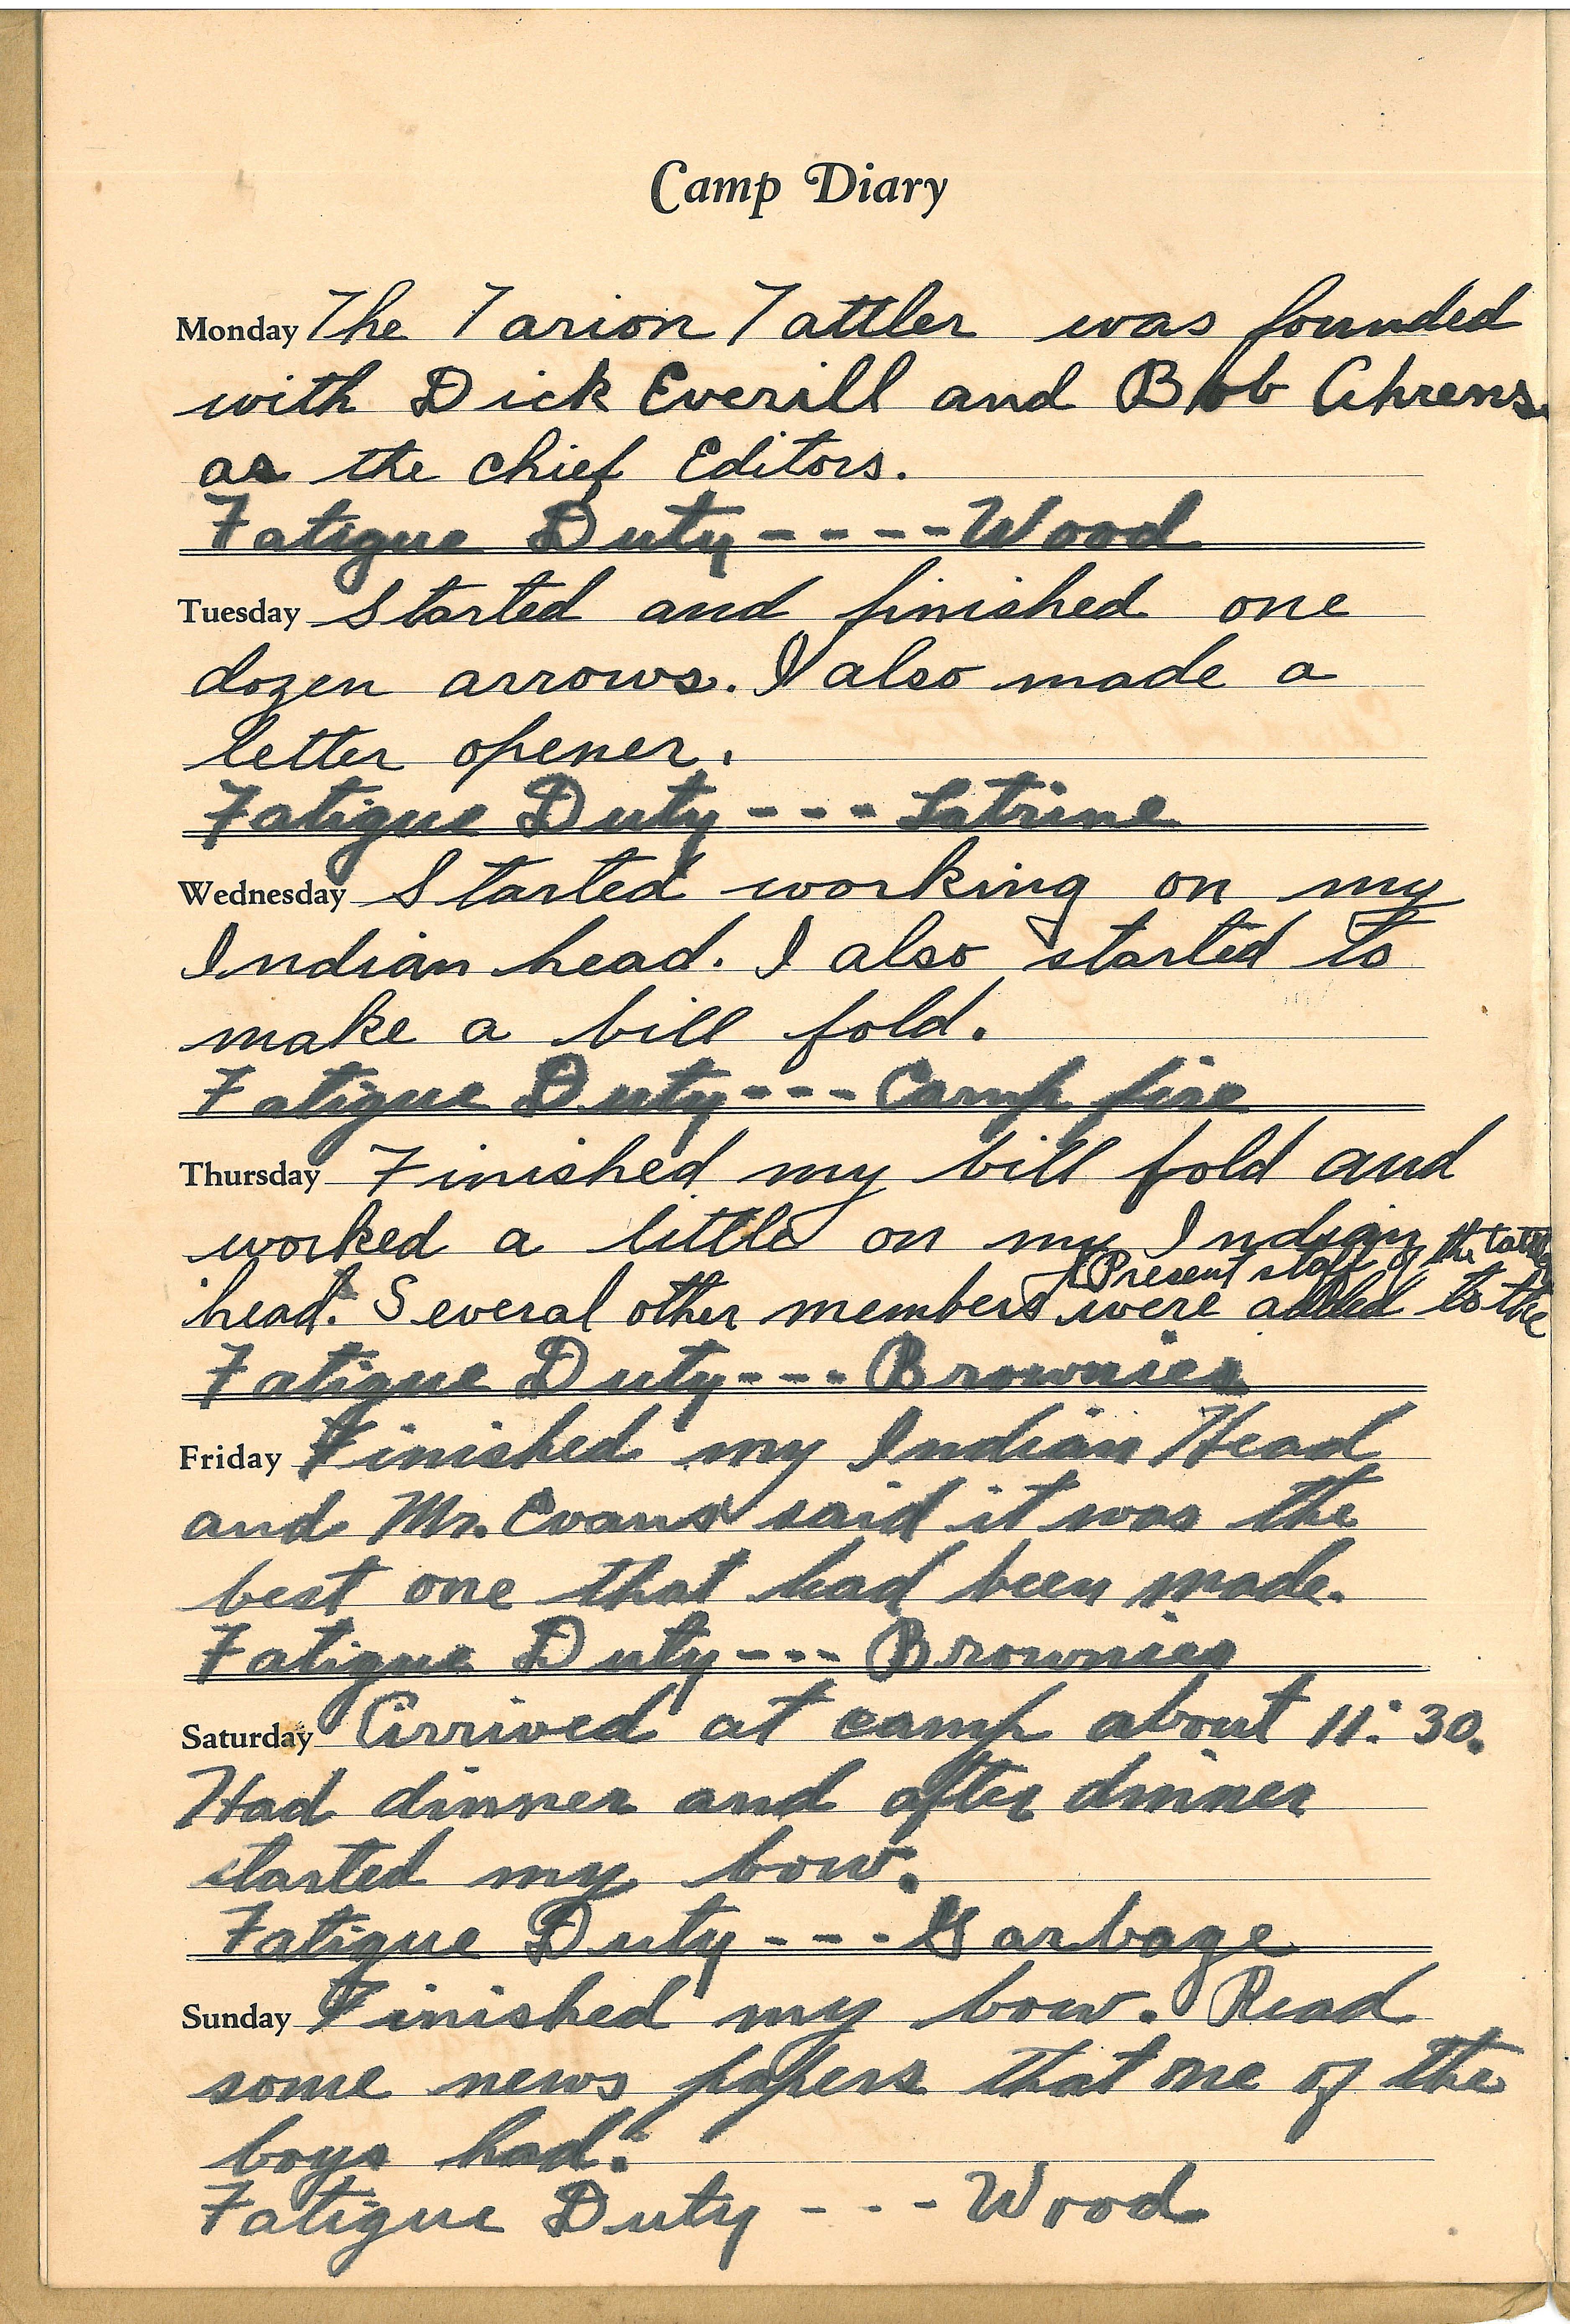 Camp Diary
Monday The Tarion Tattler was founded
with Dick Everill and Bob Ahrens
as the chief Editors.
Fatigue Duty ---- Wood
Tuesday Started and finished one
dozen arrows. I also made a
letter opener.
Fatigue Duty --- Latrine
Wednesday Started working on my
Indian head. I also started to
make a bill fold.
Fatigue Duty --- Camp fire
Thursday Finished my bill fold and
worked a little on my Indian
Present staff of the tattler
head. Several other members were added to the
Fatigue Duty --- Brownies
Friday Finished my Indian Head
and Mr. Evans said it was the
best one that had been made.
Fatigue Duty --- Brownies
Saturday Arrived at camp about 11:30.
Had dinner and after dinner
started my bow.
Fatigue Duty --- Garbage
Sunday Finished my bow. Read
some news papers that one of the
boys had.
Fatigue Duty --- Wood